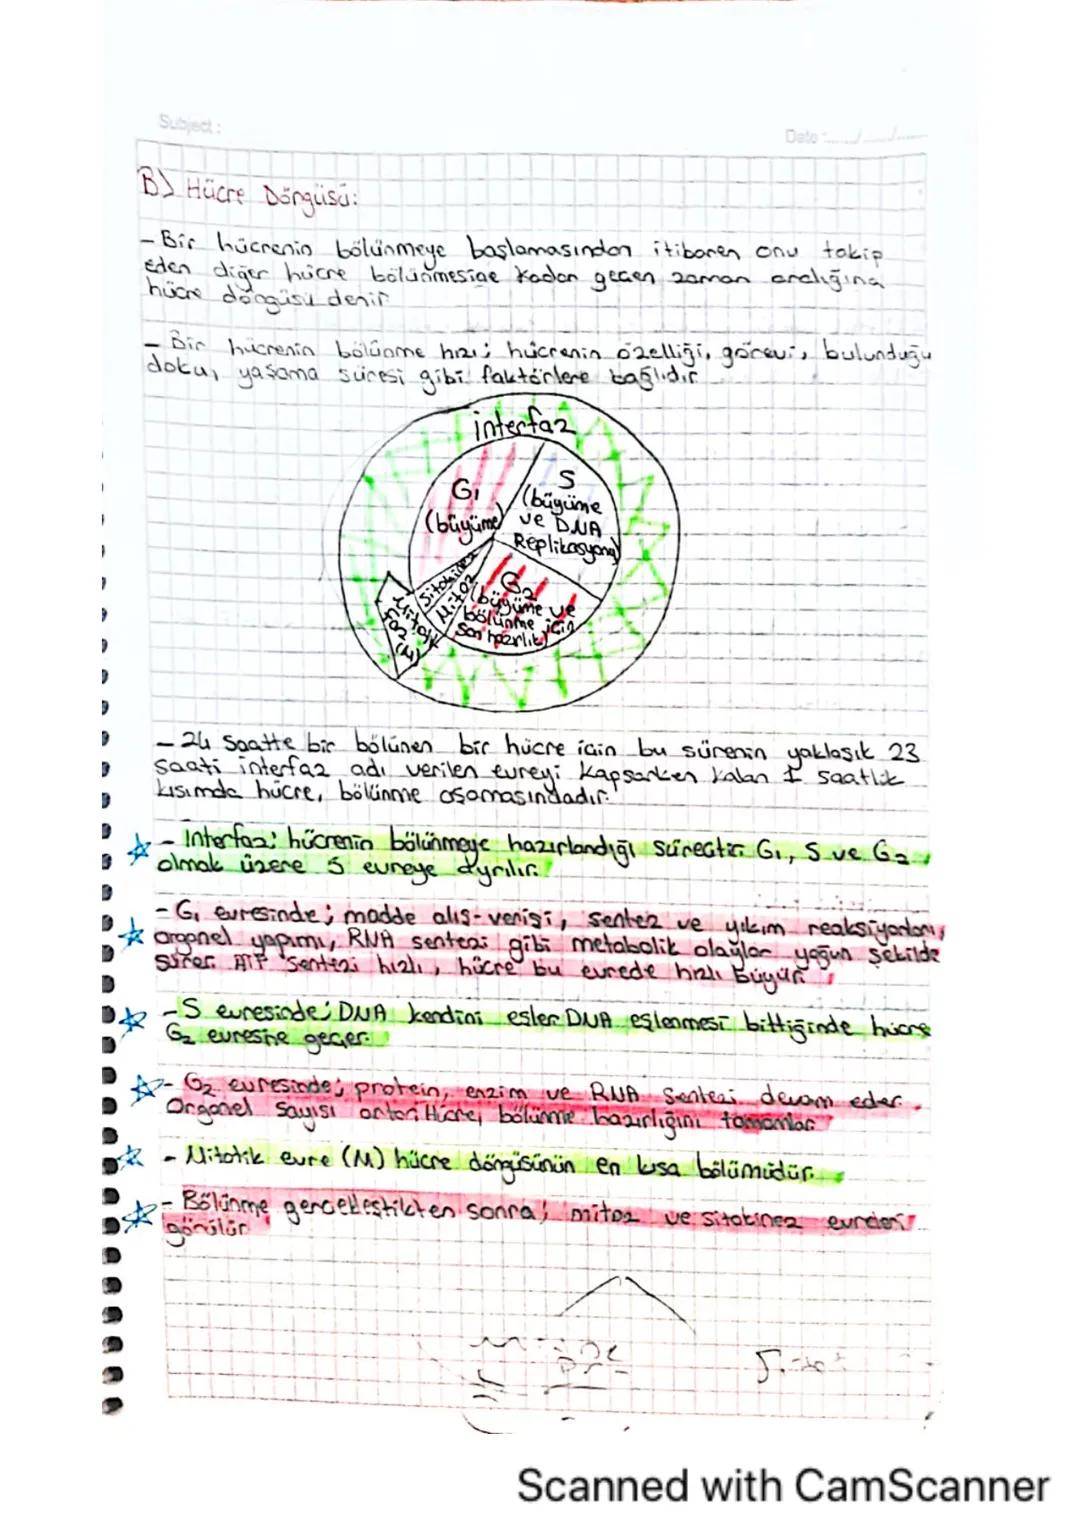 Subject :
Date :...../...../.....
B) Hücre Döngüsü:
- Bir hücrenin bölünmeye başlamasından itibaren onu takip
eden diğer hücre bölünmesine kadar geçen zaman aralığına
hücre döngüsü denir
- Bir hücrenin bölünme hızı; hücrenin özelliği, görevi, bulunduğu
doku, yaşama süresi gibi faktörlere bağlıdır
interfaz
G1
(büyüme)
S
(büyüme
ve DNA
Replikasyonu)
G2
(büyüme ve
bölünme için
son hazırlık)
Sitokinez
Mitoz
Mitotik
faz (M)
- 24 saatte bir bölünen bir hücre için bu sürenin yaklaşık 23
saati interfaz adı verilen evreyi kapsarken kalan 1 saatlik
kısımda hücre, bölünme aşamasındadır.
- İnterfaz; hücrenin bölünmeye hazırlandığı süreçtir G1, S ve G2
olmak üzere 3 evreye ayrılır.
- G1 evresinde; madde alış-verişi, sentez ve yıkım reaksiyonları,
organel yapımı, RNA sentezi gibi metabolik olaylar yoğun şekilde
sürer. ATP sentezi hızlı, hücre bu evrede hızlı büyür.
- S evresinde; DNA kendini eşler. DNA eşlenmesi bittiğinde hücre
G2 evresine geçer.
- G2 evresinde; protein, enzim ve RNA sentezi devam eder.
Organel sayısı artar. Hücre, bölünme hazırlığını tamamlar.
- Mitotik evre (M) hücre döngüsünün en kısa bölümüdür.
- Bölünme gerçekleştikten sonra; mitoz ve sitokinez evreleri
görülür
Scanned with CamScanner